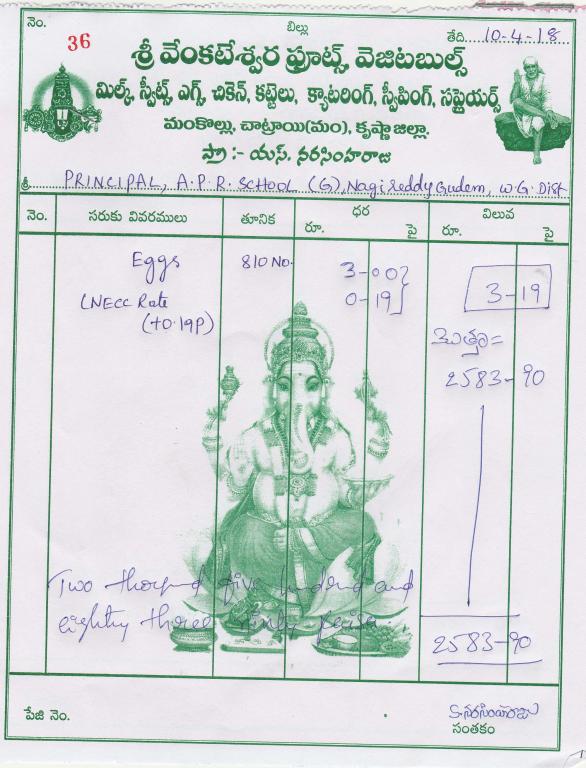 నెం.
36
బిల్లు
తేది. 10-4-18
శ్రీ వేంకటేశ్వర ఫ్రూట్స్, వెజిటబుల్స్
మిల్క్, స్వీట్స్, ఎగ్స్, చికెన్, కట్టెలు, క్యాటరింగ్, స్వీపింగ్, సప్లైయర్స్
మంకొల్లు, చాట్రాయి(మం), కృష్ణాజిల్లా.
ప్రొ :- యస్. నరసింహరాజు
శ్రీ. PRINCIPAL, A.P.R. SCHOOL (G), Nagireddy Gudem, W.G. Dist
నెం. సరుకు వివరములు తూనిక ధర విలువ
రూ. పై రూ. పై
Eggs 810 No. 3-00
(NECC Rate 0-19 3-19
(+0.19P) మొత్తం =
2583-90
Two thousand five hundred and
eighty three ninety paisa.
2583-90
పేజి నెం. S. నరసింహరాజు
సంతకం